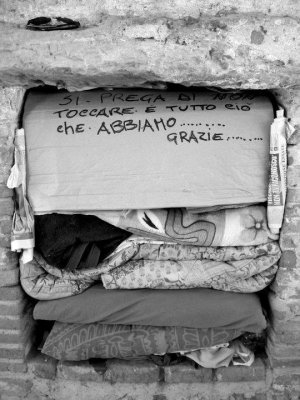 SI PREGA DI NON
TOCCARE. E TUTTO CIO
CHE. ABBIAMO..........
GRAZIE..........